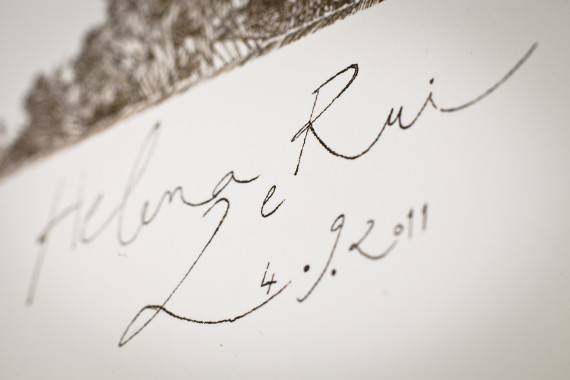 Helena e Rui
24.9.2011